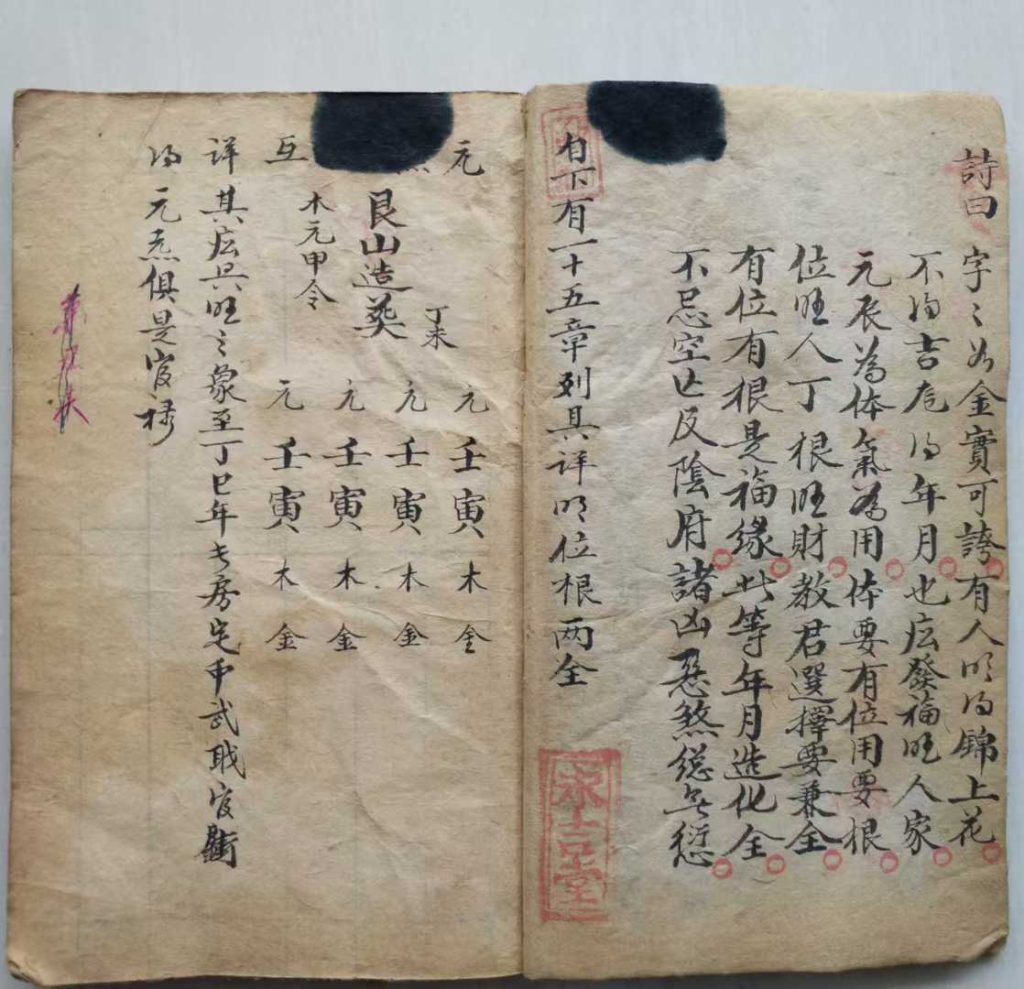 詩曰
字〻如金實可誇有人明得錦上花
不得吉庵得年月也応發福旺人家
元辰為体氣為用体要有位用要根
位旺人丁根旺財教君選擇要兼全
有位有根是福缘此等年月造化全
不忌空亡反陰府諸凶惡煞総无愆
自下有一十五章列具详明位根两全
永吉堂
元
艮山造葵
丁未
木元甲令
互
元壬寅木金
元壬寅木金
元壬寅木金
元壬寅木金
详其応只旺〻象至丁巳年长房完中武职官
得元炁俱是官禄